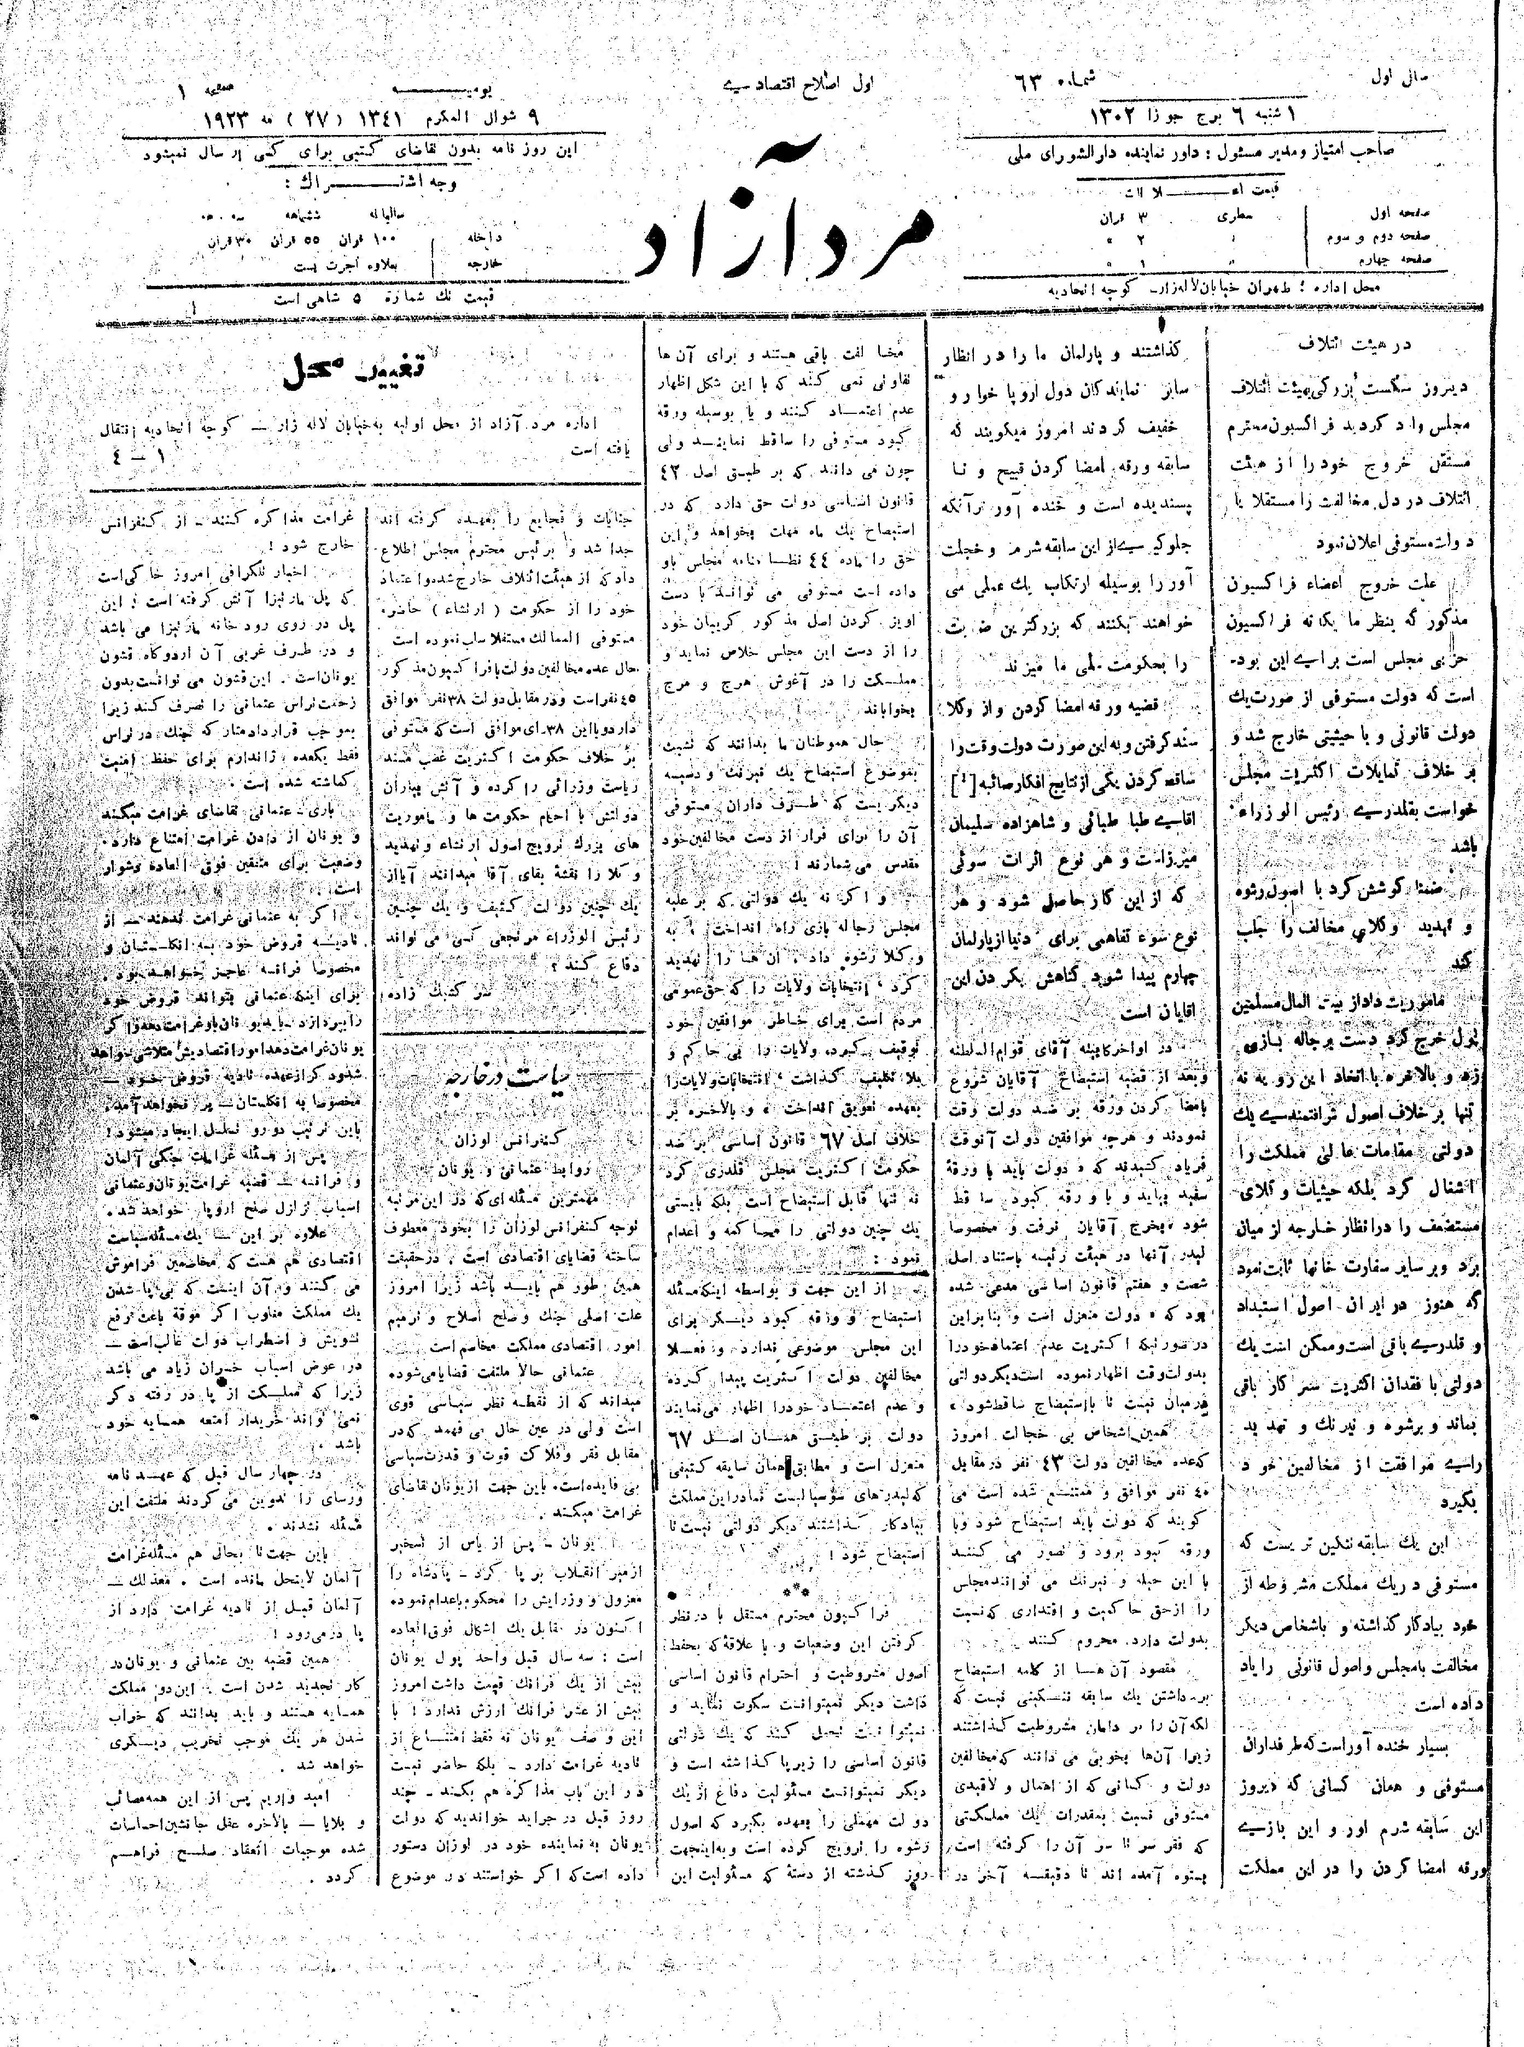 سال اول
شماره ۶۳
اول اصلاح اقتصاد سپس
یومیه
صفحه ۱
۱ شنبه ۶ برج جوزا ۱۳۰۲
۹ شوال المکرم ۱۳۴۱ (۲۷) مه ۱۹۲۳
صاحب امتیاز و مدیر مسئول : داور نماینده دارالشورای ملی
این روزنامه بدون تقاضای کتبی برای کسی ارسال نمیشود
مرد آزاد
قیمت اعلانات
صفحه اول سطری ۳ قران
صفحه دوم و سوم ۲
صفحه چهارم ۱
محل اداره : طهران خیابان لاله زار کوچه اتحادیه
وجه اشتراك :
سالیانه ششماهه
داخله ۱۰۰ قران ۵۵ قران ۳۰ قران
خارجه بعلاوه اجرت پست
قیمت تك شماره ۵ شاهی است
در هیئت ائتلاف
دیروز شکست بزرگی بهیئت ائتلاف
مجلس وارد گردید فراکسیون محترم
مستقل خروج خود را از هیئت
ائتلاف در دل مخالفت را مستقلا با
دولت مستوفی اعلان نمود
علت خروج اعضاء فراکسیون
مذکور که بنظر ما یگانه فراکسیون
حزبی مجلس است برای این بود
است که دولت مستوفی از صورت یك
دولت قانونی و با حیثیتی خارج شد و
بر خلاف تمایلات اکثریت مجلس
خواست بقلدری رئیس الوزراء
باشد
ضمنا کوشش کرد با اصول رشوه
و تهدید وکلای مخالف را جلب
کند
ماموریت داد از بیت المال مسلمین
پول خرج کرد دست برجاله بازی
زد و بالاخره با اتخاذ این رویه نه
تنها بر خلاف اصول شرافتمندی یك
دولتی مقامات عالی مملکت را
اشغال کرد بلکه حیثیات وکلای
مستضعف را در انظار خارجه از میان
برد و بر سایر سفارت خانها ثابت نمود
که هنوز در ایران اصول استبداد
و قلدری باقی است و ممکن است یك
دولتی با فقدان اکثریت سر کار باقی
بماند و برشوه و نیرنك و تهدید
رای موافقت از مخالفین خود
بگیرد
این یك سابقه ننگین تریست که
مستوفی در یك مملکت مشروطه از
خود بیادگار گذاشته و باشخاص دیگر
مخالفت با مجلس و اصول قانونی را یاد
داده است
بسیار خنده آور است که طرفداران
مستوفی و همان کسانی که دیروز
این سابقه شرم آور و این بازی
ورقه امضا کردن را در این مملکت
گذاشتند و پارلمان ما را در انظار
سایر نمایندگان دول اروپا خوار و
خفیف کردند امروز میگویند که
سابقه ورقه امضا کردن قبیح و نا
پسندیده است و خنده آور تر آنکه
جلوگیری از این سابقه شرم و خجلت
آور را بوسیله ارتکاب یك عملی می
خواهند بکنند که بزرگترین ضربت
را بحکومت ملی ما میزند
قضیه ورقه امضا کردن و از وکلا
سند گرفتن و به این صورت دولت وقت را
ساقط کردن یکی از نتایج افکار صائبه [!]
آقای طبا طبائی و شاهزاده سلیمان
میرزاست و هر نوع اثرات سوئی
که از این کار حاصل شود و هر
نوع سوء تفاهمی برای دنیا از پارلمان
چهارم پیدا شود گناهش بگردن این
آقایان است
در اواخر کابینه آقای قوام السلطنه
و بعد از قضیه استیضاح آقایان شروع
بامضا کردن ورقه بر ضد دولت وقت
نمودند و هرچه موافقین دولت آنوقت
فریاد کشیدند که « دولت باید با ورقه
سفید بیاید و با ورقه کبود ساقط
شود » بخرج آقایان نرفت و مخصوصا
لیدر آنها در هیئت رئیسه باستناد اصل
شصت و هفتم قانون اساسی مدعی شده
بود که « دولت منعزل است و بنابراین
در صورتیکه اکثریت عدم اعتماد خود را
بدولت وقت اظهار نموده است دیگر دولتی
در میان نیست تا باستیضاح ساقط شود »
همین اشخاص بی خجالت امروز
که عده مخالفین دولت ۴۳ نفر در مقابل
۴۰ نفر موافق و ممتنع شده است می
گویند که دولت باید استیضاح شود و با
ورقه کبود برود و تصور می کنند
با این حیله و نیرنك می توانند مجلس
را از حق حاکمیت و اقتداری که نسبت
بدولت دارد محروم کنند
مقصود آن ها از کلمه استیضاح
برداشتن یك سابقه ننگینی نیست که
لکه آن را بر دامان مشروطیت گذاشتند
زیرا آن ها بخوبی می دانند که مخالفین
دولت و کسانی که از اهمال و لاقیدی
مستوفی نسبت بمقدرات یك مملکتی
که فقر سر تا سر آن را گرفته است
بستوه آمده اند تا دقیقه آخر در
مخالفت باقی هستند و برای آن ها
تفاوتی نمی کند که با این شکل اظهار
عدم اعتماد کنند و یا بوسیله ورقه
کبود مستوفی را ساقط نمایند ولی
چون می دانند که بر طبق اصل ۴۲
قانون اساسی دولت حق دارد که در
استیضاح یك ماه مهلت بخواهد و این
حق را ماده ۴۴ نظامنامه مجلس باو
داده است مستوفی می توانند با دست
آویز کردن اصل مذکور گریبان خود
را از دست این مجلس خلاص نماید و
مملکت را در آغوش هرج و مرج
بخواباند
حال هموطنان ما بدانند که تشبث
بموضوع استیضاح یك نیرنك و دسیسه
دیگریست که طرف داران مستوفی
آن را برای فرار از دست مخالفین خود
مقدس می شمارند !
و اگر نه یك دولتی که بر علیه
مجلس رجاله بازی راه انداخت ، به
وکلا رشوه داد ، آن ها را تهدید
کرد ، انتخابات ولایات را که حق عمومی
مردم است برای خاطر موافقین خود
توقیف کرده ولایات را بی حاکم و
بلا تکلیف گذاشت ، انتخابات ولایات را
بعهده تعویق انداخت ، و بالاخره بر
خلاف اصل ۶۷ قانون اساسی بر ضد
حکومت اکثریت مجلس قلدری کرد
نه تنها قابل استیضاح است بلکه بایستی
یك چنین دولتی را محاکمه و اعدام
نمود :
از این جهت و بواسطه اینکه مسئله
استیضاح و ورقه کبود دیگر برای
این مجلس موضوعی ندارد و فعلا
مخالفین دولت اکثریت پیدا کرده
و عدم اعتماد خود را اظهار می نمایند
دولت بر طبق همان اصل ۶۷
منعزل است و مطابق همان سابقه کثیفی
که لیدرهای سوسیالیست نما در این مملکت
بیادگار گذاشتند دیگر دولتی نیست تا
استیضاح شود !
***
فراکسیون محترم مستقل با در نظر
گرفتن این وضعیات و با علاقه که بحفظ
اصول مشروطیت و احترام قانون اساسی
داشت دیگر نمیتوانست سکوت نماید و
نمیتوانست تحمل کند که یك دولتی
قانون اساسی را زیر پا گذاشته است و
دیگر نمیتوانست مسئولیت دفاع از یك
دولت مهملی را بعهده بگیرد که اصول
رشوه را ترویج کرده است و به اینجهت
روز گذشته از دسته که مسئولیت این
تغییر محل
اداره مرد آزاد از محل اولیه به خیابان لاله زار — کوچه اتحادیه انتقال
یافته است
۱ — ۴
جنایات و فجایع را بعهده گرفته اند
جدا شد و برئیس محترم مجلس اطلاع
داد که از هیئت ائتلاف خارج شده و اعتماد
خود را از حکومت ( ارتشاء ) حاضره
مستوفی الممالك مستقلا سلب نموده است
حال عده مخالفین دولت با فراکسیون مذکور
۴۵ نفر است و در مقابل دولت ۳۸ نفر موافق
دارد و با این ۳۸ رای موافق است که مستوفی
بر خلاف حکومت اکثریت غصب مسند
ریاست وزرائی را کرده و آتش بیاران
دولتش با احکام حکومت ها و ماموریت
های بزرگ ترویج اصول ارتشاء و تهدید
وکلا را نقشه بقای آقا میدانند آیا از
یك چنین دولت کثیف و یك چنین
رئیس الوزراء مرتجعی کسی می تواند
دفاع کند ؟
سیاست در خارجه
کنفرانس لوزان
روابط عثمانی و یونان
مهمترین مسئله ای که در این مرتبه
توجه کنفرانس لوزان را بخود معطوف
ساخته قضایای اقتصادی است . در حقیقت
همین طور هم باید باشد زیرا امروز
علت اصلی جنك و صلح اصلاح و ترمیم
امور اقتصادی مملکت مخاصم است
عثمانی حالا ملتفت قضایا می شوده
میداند که از نقطه نظر سیاسی قوی
است ولی در عین حال می فهمد که در
مقابل فقر و فلاکت قوت و قدرت سیاسی
بی فایده است . باین جهت از یونان تقاضای
غرامت میکند .
یونان — پس از یاس از تسخیر
ازمیر انقلاب بر پا کرد — پادشاه را
معزول و وزرایش را محکوم باعدام نموده
اکنون در مقابل یك اشکال فوق العاده
است : سه سال قبل واحد پول یونان
بیش از یك فرانك قیمت داشت امروز
بیش از عشر فرانك ارزش ندارد ! با
این وصف یونان نه فقط امتناع از
تادیه غرامت دارد — بلکه حاضر نیست
در این باب مذاکره هم بکند — چند
روز قبل در جراید خواندید که دولت
یونان به نماینده خود در لوزان دستور
داده است که اگر خواستند در موضوع
غرامت مذاکره کنند — از کنفرانس
خارج شود !
اخبار تلگرافی امروز حاکی است
که پل مارتیزا آتش گرفته است ! این
پل در روی رود خانه مارتیزا می باشد
و در طرف غربی آن اردوگاه قشون
یونان است . این قشون می توانست بدون
زحمت تراس عثمانی را تصرف کند زیرا
بموجب قرارداد متارکه جنك ، در تراس
فقط یکعده ژاندارم برای حفظ امنیت
گماشته شده است .
باری — عثمانی تقاضای غرامت میکند
و یونان از دادن غرامت امتناع دارد .
وضعیت برای متفقین فوق العاده دشوار
است .
اگر به عثمانی غرامت ندهند — از
تادیه قروض خود به انگلستان و
مخصوصا فرانسه عاجز خواهد بود .
برای اینکه عثمانی بتواند قروض خود
را بپردازد — باید یونان باو غرامت دهد و اگر
یونان غرامت دهد امور اقتصادیش متلاشی خواهد
شد و دیگر از عهده تادیه قروض خود —
مخصوصا به انگلستان — بر نخواهد آمد .
باین ترتیب دور و تسلسل ایجاد میشود !
پس از مسئله غرامات جنگی آلمان
و فرانسه — قضیه غرامت یونان و عثمانی
اسباب تزلزل صلح اروپا خواهد شد .
علاوه بر این — یك مسئله سیاست
اقتصادی هم هست که مخاصمین فراموش
می کنند و آن اینست که بی پا شدن
یك مملکت مغلوب اگر موقة باعث رفع
تشویش و اضطراب دولت غالب است —
در عوض اسباب خسران زیاد می باشد
زیرا که مملکت از پا در رفته دگر
نمی تواند خریدار امتعه همسایه خود
باشد .
در چهار سال قبل که عهد نامه
ورسای را تدوین می کردند ملتفت این
مسئله نشدند .
باین جهت تا بحال هم مسئله غرامت
آلمان لاینحل مانده است . معذلك —
آلمان قبل از تادیه غرامت دارد از
پا در می رود !
همین قضیه بین عثمانی و یونان در
کار تجدید شدن است . این دو مملکت
همسایه هستند و باید بدانند که خراب
شدن هر یك موجب تخریب دیگری
خواهد شد .
امید واریم پس از این همه مصائب
و بلایا — بالاخره عقل جانشین احساسات
شده موجبات انعقاد صلح فراهم
گردد .